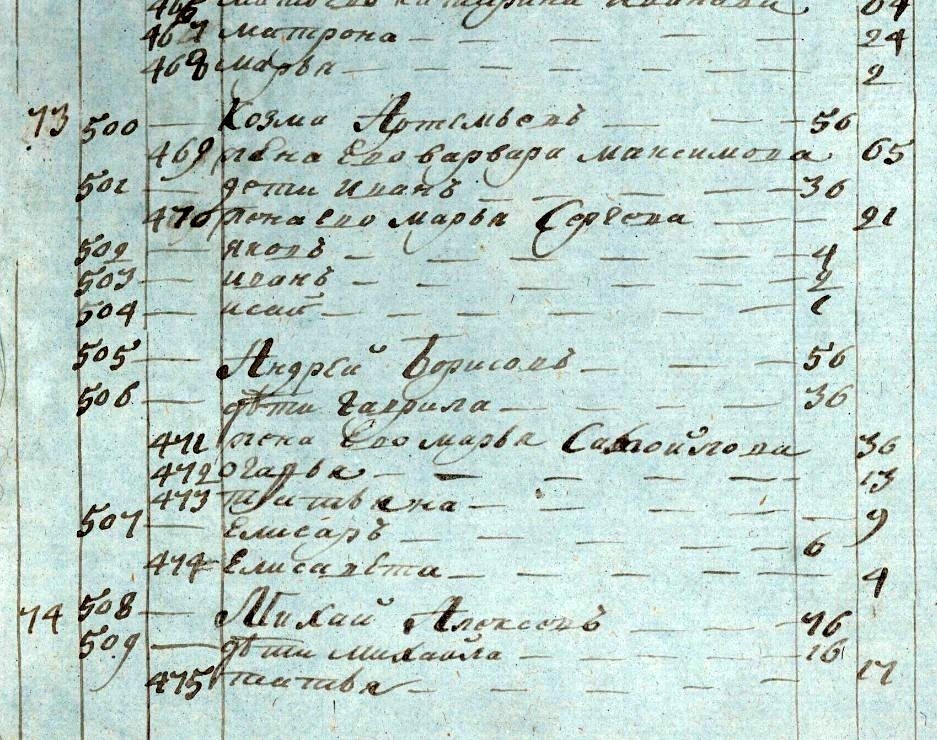 467 матрона 24
468 марья 2
73 500 Козма Артемьевъ 56
469 жена Его варвара максимова 65
501 дети иванъ 36
470 жена Ево марья Сергеева 21
502 яковъ 4
503 иванъ 2
504 исай 1
505 Андрей Борисовъ 56
506 дѣти гаврила 36
471 жена Ево марья Самойлова 36
472 огафья 13
473 татьяна 9
507 Елисаръ 6
474 Елисавета 4
74 508 Михай Алексеевъ 46
509 дѣти михайла 16
475 татья 17